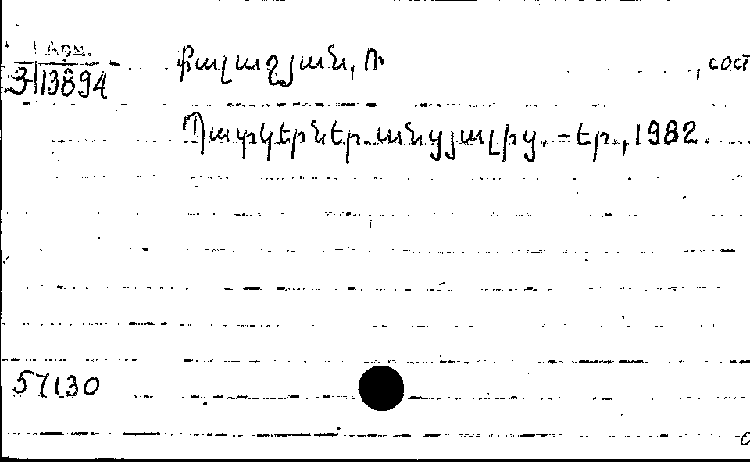 Арм.
3 13894
Քալաշյան, Ռ , сост
Պատկերներ անցյալից. – Եր., 1982.
57130